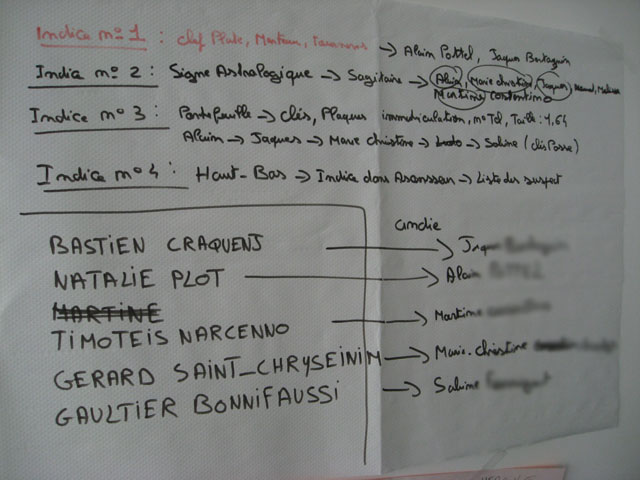 Indice n° 1 : clef Plate, Manteau, → Alain Pottel, Jaques
Indice n° 2 : Signe Astrologique → Sagitaire → Alain, Marie christine, Jaques,
Martine Constantino
Indice n° 3 : Portefeuille → clés, Plaques immatriculation, n° Tel, Taille : 1,64
Alain → Jaques → Marie Christine → → Sabine (clés Passe)
Indice n° 4 : Haut-Bas → Indice dans Ascenseur → Liste des suspect
candie
BASTIEN CRAQUENJ → Jaques
NATALIE PLOT → Alain
MARTINE
TIMOTEIS NARCENNO → Martine
GERARD SAINT_CHRYSEINIM → Marie-christine
GAULTIER BONNIFAUSSI → Sabine